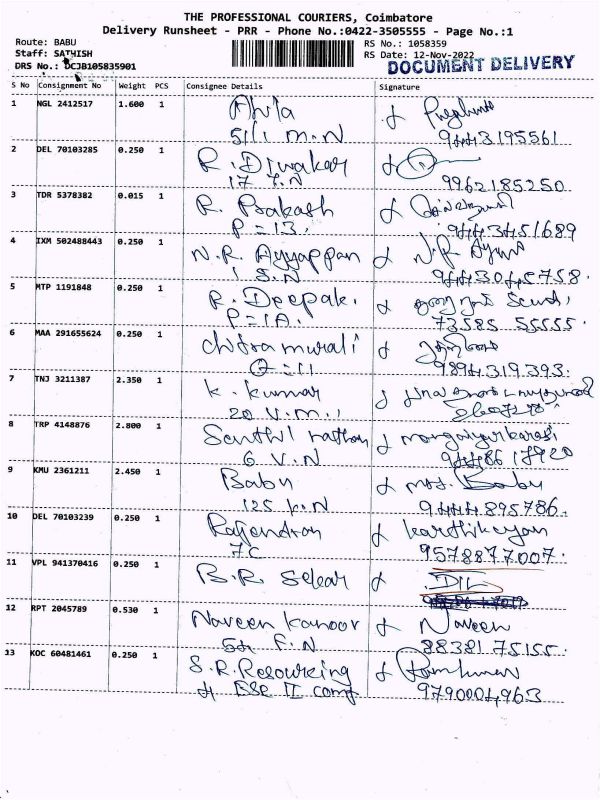 THE PROFESSIONAL COURIERS, Coimbatore
Delivery Runsheet - PRR - Phone No.:0422-3505555 - Page No.:1
Route: BABU RS No.: 1058359
Staff: SATHISH RS Date: 12-Nov-2022
DRS No.: DCJB105835901 DOCUMENT DELIVERY
S No Consignment No Weight PCS Consignee Details Signature
1 NGL 2412517 1.600 1
511 M.N 9443195561
2 DEL 70103285 0.250 1 R. Diwakar
17 9962185250
3 TDR 5378382 0.015 1 R. Prakash
P=13. 9443451689
4 IXM 502488443 0.250 1 N.R. Ayyappan N.R.
1 S.N 9443045758.
5 MTP 1191848 0.250 1 R. Deepak.
P=1A. 73585 55555
6 MAA 291655624 0.250 1 chitra murali
9894319393.
7 TNJ 3211387 2.350 1 K. Kumar
20 V.M.
8 TRP 4148876 2.800 1 Senthil nathan mangaiyarkarasi
6 V.N
9 KMU 2361211 2.450 1 Babu mrs. Babu
125 K.N 9444895786.
10 DEL 70103239 0.250 1 Rajendran karthikeyan
7C 9578877007.
11 VPL 941370416 0.250 1 B.R. Sekar
12 RPT 2045789 0.530 1 Naveen Kanoor Naveen
F.N 88381 75155
13 KOC 60481461 0.250 1 S.R. Resourcing
9790004963